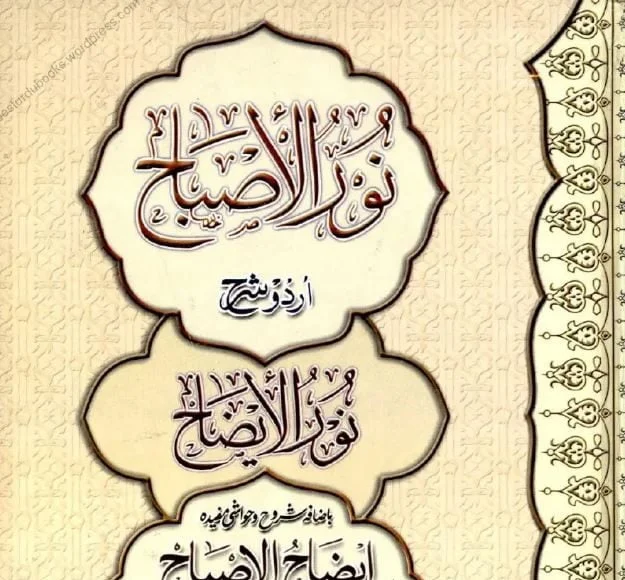 نُورُ الْأَصْبَاح
اُردو شرح
نُورُ الْاِيضَاح
باضافہ شروح و حواشی مفیدہ
اِيضَاحُ الْاِصْبَاح
besturdubooks.wordpress.com